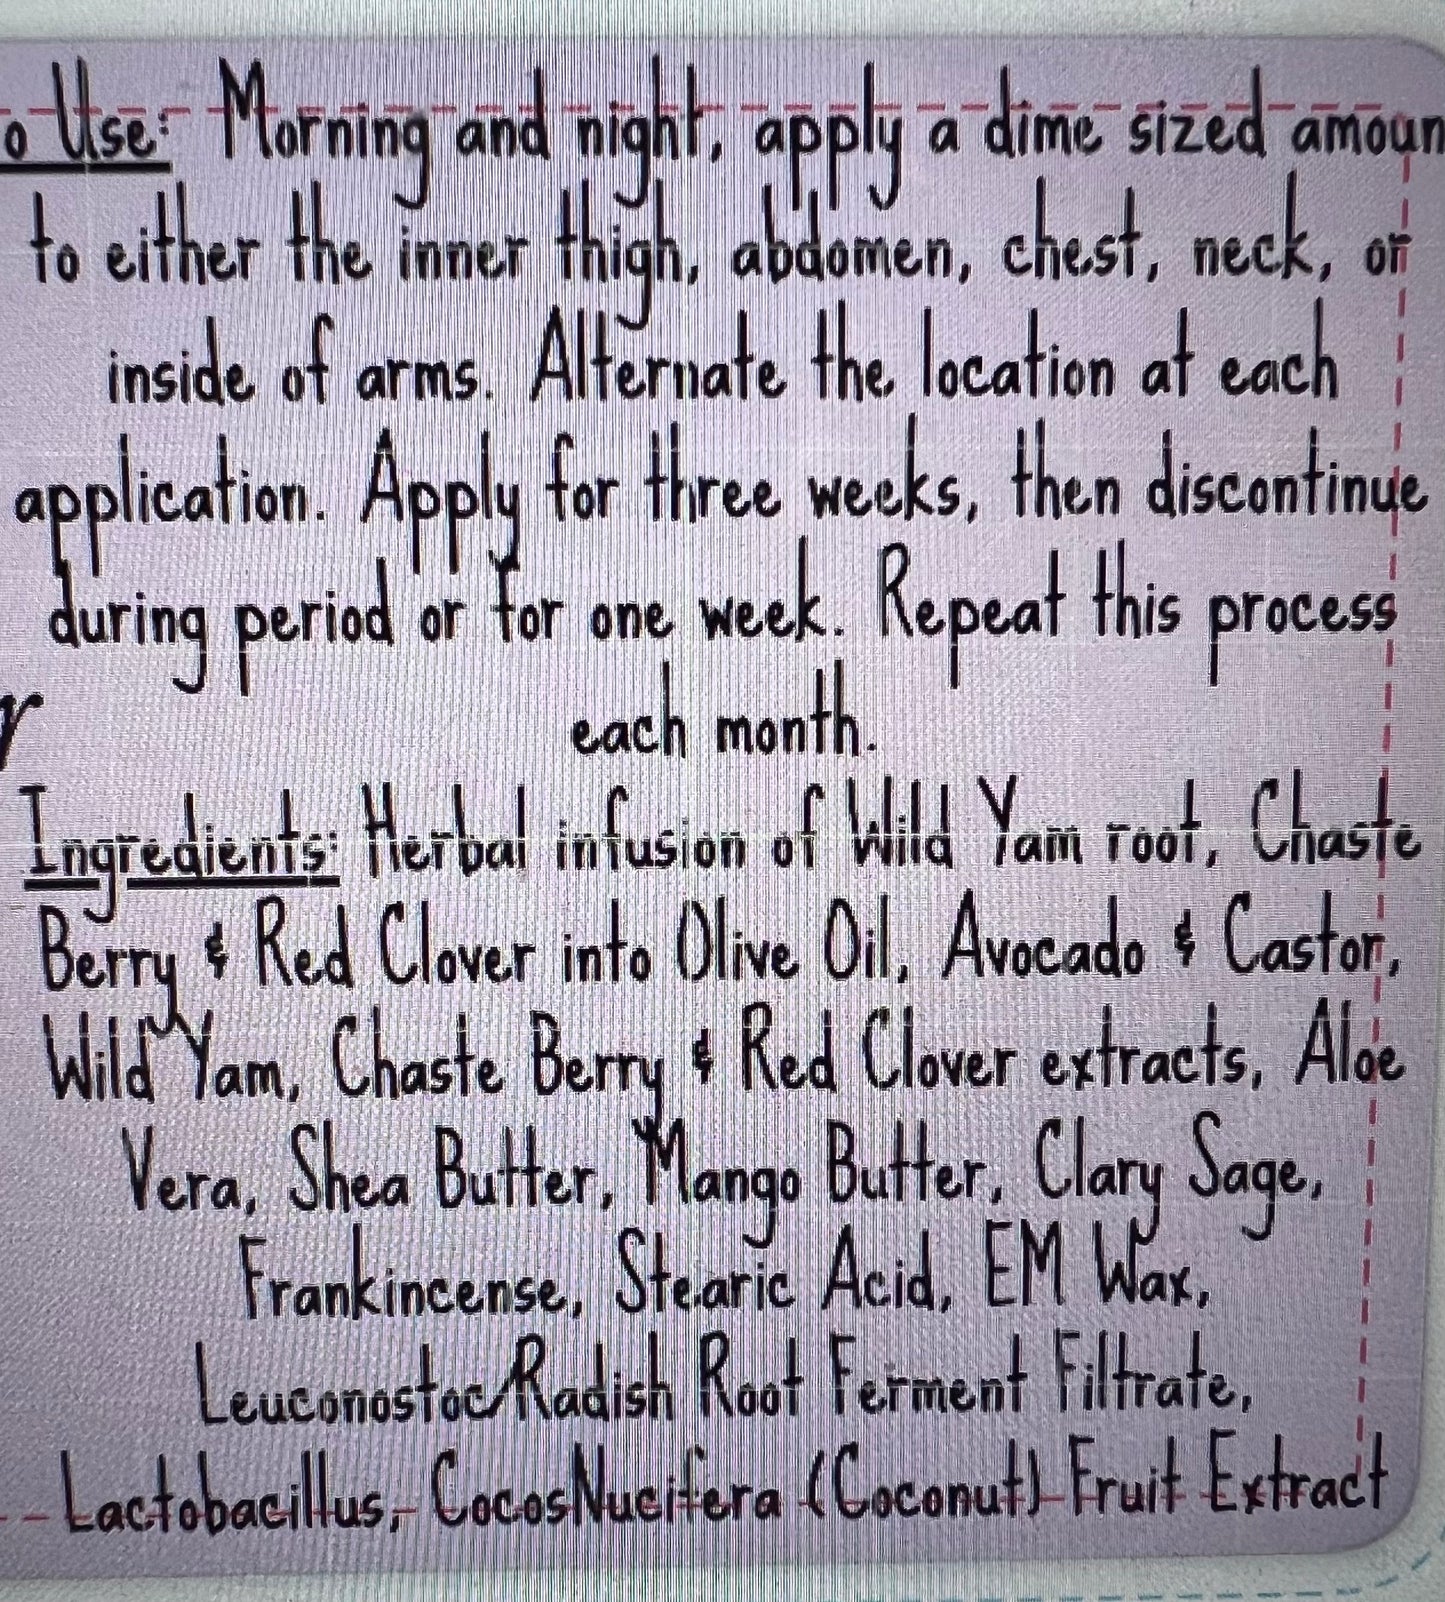 o Use: Morning and night, apply a dime sized amoun
to either the inner thigh, abdomen, chest, neck, or
inside of arms. Alternate the location at each
application. Apply for three weeks, then discontinue
during period or for one week. Repeat this process
r
each month.
Ingredients: Herbal infusion of Wild Yam root, Chaste
Berry & Red Clover into Olive Oil, Avocado & Castor,
Wild Yam, Chaste Berry & Red Clover extracts, Aloe
Vera, Shea Butter, Mango Butter, Clary Sage,
Frankincense, Stearic Acid, EM Wax,
Leuconostoc/Radish Root Ferment Filtrate,
Lactobacillus, CocosNucifera (Coconut) Fruit Extract